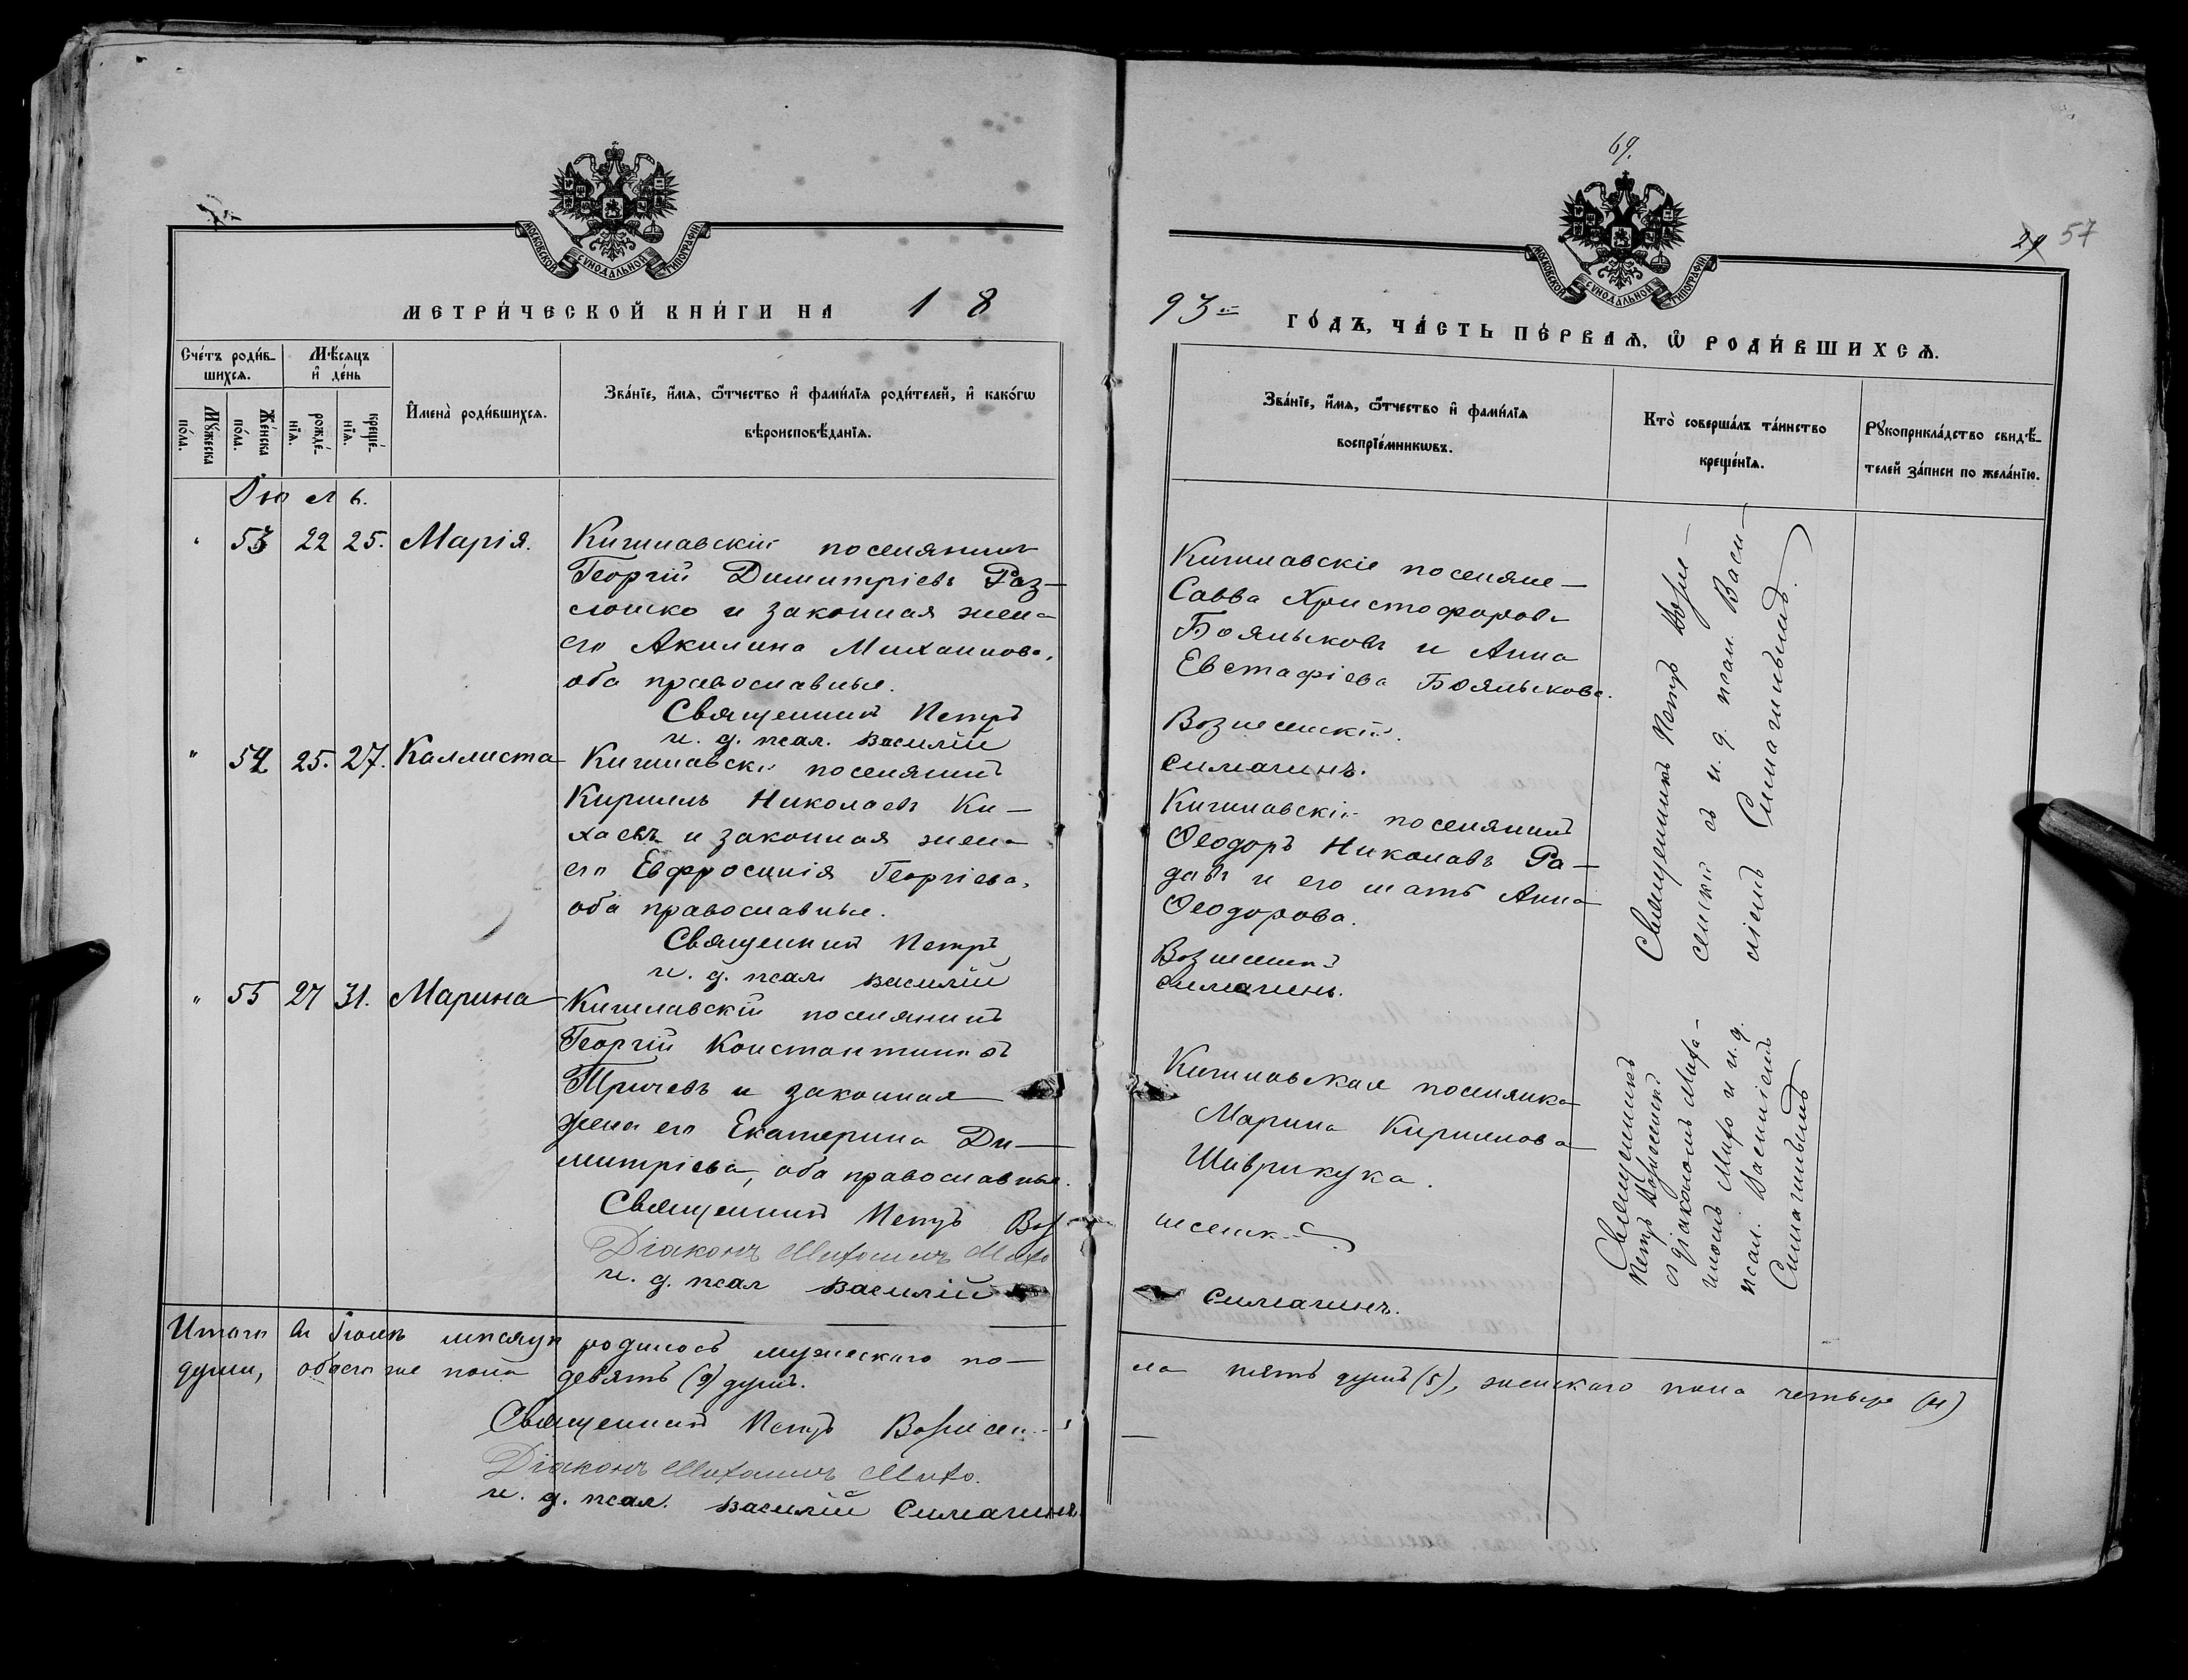 69.
29 57
МОСКОВСКОЙ СѴНОДАЛЬНОЙ ТИПОГРАФІИ
МОСКОВСКОЙ СѴНОДАЛЬНОЙ ТИПОГРАФІИ
МЕТРИ́ЧЕСКОЙ КНИ́ГИ НА 18
93 ГО́ДЪ, ЧА́СТЬ ПЕ́РВАѦ, Ѡ҆ РОДИ́ВШИХСѦ.
Сче́тъ роди́в-
шихсѧ.
Мꙋ́жеска
по́ла.
Же́нска
по́ла.
Мѣ́сѧцъ
и҆ де́нь
рожде́-
нїѧ.
креще́-
нїѧ.
И҆мена̀ роди́вшихсѧ.
Зва́нїе, и҆́мѧ, ѻ҆́тчество и҆ фами́лїѧ роди́телей, и҆ како́гѡ
вѣроисповѣ́данїѧ.
Зва́нїе, и҆́мѧ, ѻ҆́тчество и҆ фами́лїѧ
воспрїе́мникѡвъ.
Кто̀ соверша́лъ та́инство
креще́нїѧ.
Рꙋкоприкла́дство свидѣ́-
телей за́писи по жела́нїю.
Іюль.
" 53 22 25. Марія.
Кишлавскій поселянин
Георгій Димитріевъ Раз-
слошко и законная жена
его Акилина Михаилова,
оба православные.
Священник Петръ
и. д. псал. Василій
Кишлавскіе поселяне -
Савва Христофоровъ
Бояльковъ и Анна
Евстафіева Боялькова.
Вознесенскій.
Симагинъ.
Священникъ Петръ Возне-
сенскій съ и. д. псал. Васи-
ліемъ Симагинымъ.
" 54 25. 27. Каллиста
Кишлавскій поселянинъ
Кириллъ Николаевъ Ки-
хаевъ и законная жена
его Евфросинія Георгіева,
оба православные.
Священник Петръ
и. д. псал. Василій
Кишлавскій поселянинъ
Ѳеодоръ Николаевъ Ра-
девъ и его мать Анна
Ѳеодорова.
Вознесенскій
Симагинъ.
" 55 27 31. Марина
Кишлавскій поселянинъ
Георгій Константиновъ
Тричевъ и законная
жена его Екатерина Ди-
митріева, оба православные.
Священник Петръ Воз
Діаконъ Михаилъ Михо
и. д. псал Василій
Кишлавская поселянка
Марина Кириллова
Шиврикука.
несенскій
Симагинъ.
Священникъ
Петръ Вознесенскій
съ діакономъ Миха-
иломъ Михо и и. д.
псал. Василіемъ
Симагинымъ
Итого въ Іюлѣ мѣсяцѣ родилось мужескаго по-
ла пять душъ (5), женскаго пола четыре (4)
души, обоего же пола девять (9) душъ.
Священник Петръ Вознесенскій
Діаконъ Михаилъ Михо.
и. д. псал. Василій Симагинъ.